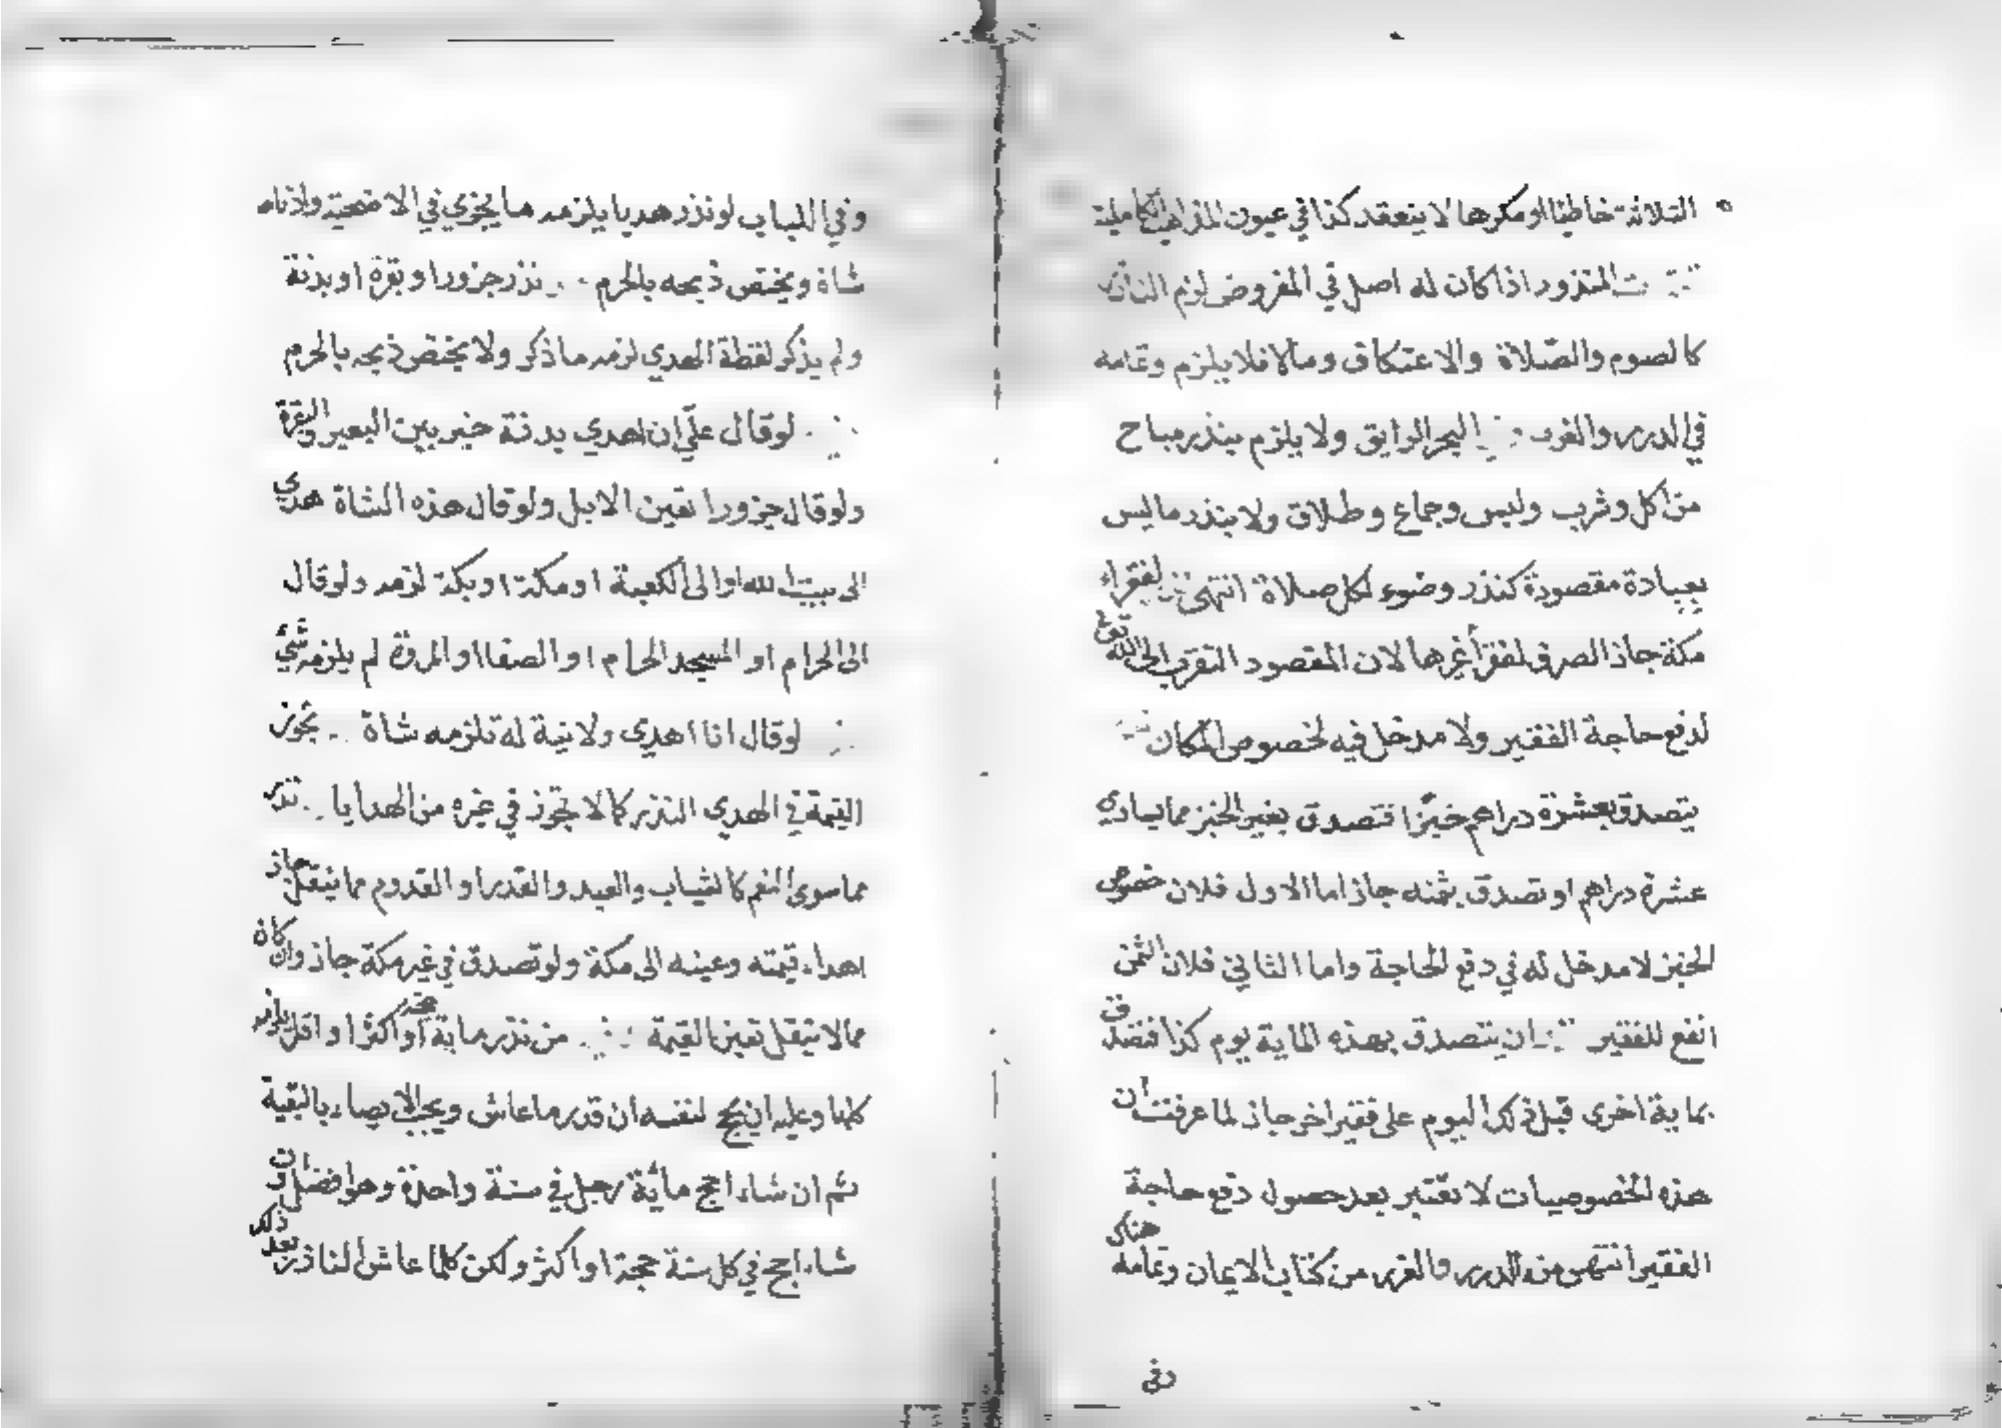 الثلاثة خاطئا او مكرها لا ينعقد كذا في عيون المذاهب الكاملية
المنذور اذا كان له اصل في المفروض لزم الناذر
كالصوم والصلاة والاعتكاف ومالا فلا يلزم وتمامه
في الدرر والغرر البحر الرايق ولا يلزم بنذر مباح
من اكل وشرب ولبس وجماع وطلاق ولا بنذر ما ليس
بعبادة مقصودة كنذر وضوء لكل صلاة انتهى نذر لفقراء
مكة جاز الصرف لفقرأ غيرها لان المقصود التقرب الى الله تعالى
لدفع حاجة الفقير ولا مدخل فيه لخصوص المكان
يتصدق بعشرة دراهم خبزا فتصدق بغير الخبز مما يساوي
عشرة دراهم او تصدق بثمنه جاز اما الاول فلان خصوص
الخبز لا مدخل له في دفع الحاجة واما الثاني فلان الثمن
انفع للفقير ان يتصدق بهذه الماية يوم كذا فتصدق
بماية اخرى قبل ذلك اليوم على فقير اخر جاز لما عرفت ان
هذه الخصوصيات لا تعتبر بعد حصول دفع حاجة
الفقير انتهى من الدرر والغرر من كتاب الايمان وتمامه هناك
وفي
وفي اللباب لو نذر هديا يلزمه ما يجزي في الاضحية وادناه
شاة ويختص ذبحه بالحرم نذر جزورا او بقرة او بدنة
ولم يذكر لفظة الهدي لزمه ما ذكر ولا يختص ذبحه بالحرم
لو قال علي ان اهدي بدنة خير بين البعير والبقرة
ولو قال جزورا تعين الابل ولو قال هذه الشاة هدي
الى بيت الله او الى الكعبة او مكة او بكة لزمه ولو قال
الى الحرام او المسجد الحرام او الصفا او المروة لم يلزمه شئ
لو قال انا اهدى ولا نية له تلزمه شاة يجوز
القيمة في الهدي النذر كما لا تجوز في غيره من الهدايا نذر
مما سوى النعم كالثياب والعبد والقدر او القدوم مما ينقل جاز
اهداء قيمته وعينه الى مكة ولو تصدق في غير مكة جاز وان كان
مما لا ينقل تعين القيمة من نذر ماية حجة او اكثر او اقل يلزمه
كلها وعليه ان يحج لنفسه ان قدر ما عاش ويجب الايصاء بالبقية
ثم ان شاء احج مائة رجل في سنة واحدة وهو افضل وان
شاء احج في كل سنة حجة او اكثر ولكن كلما عاش الناذر بعد ذلك